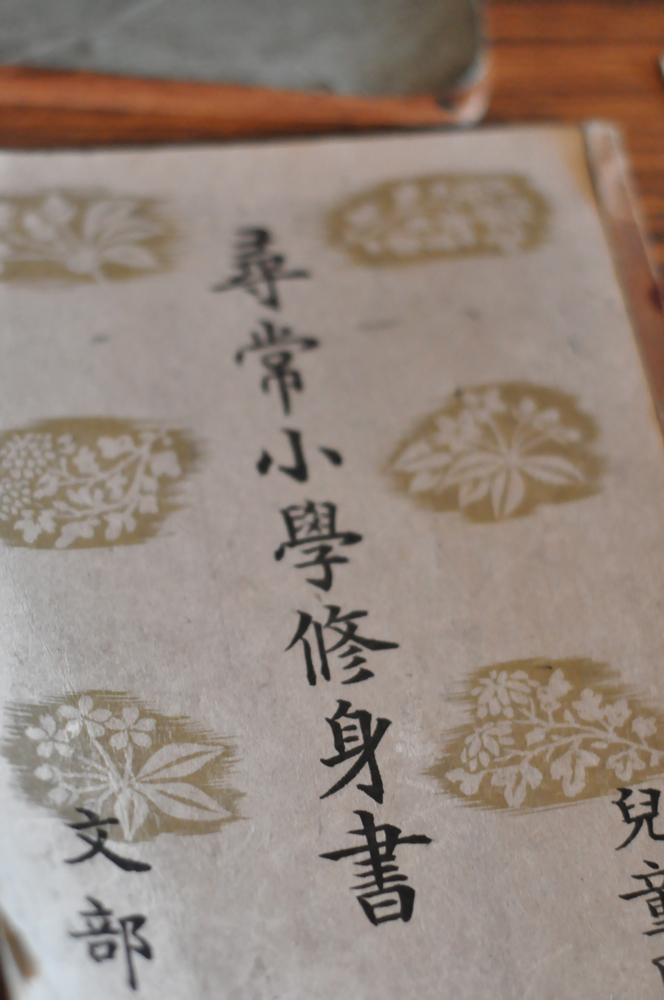 兒童
尋常小學修身書
文部